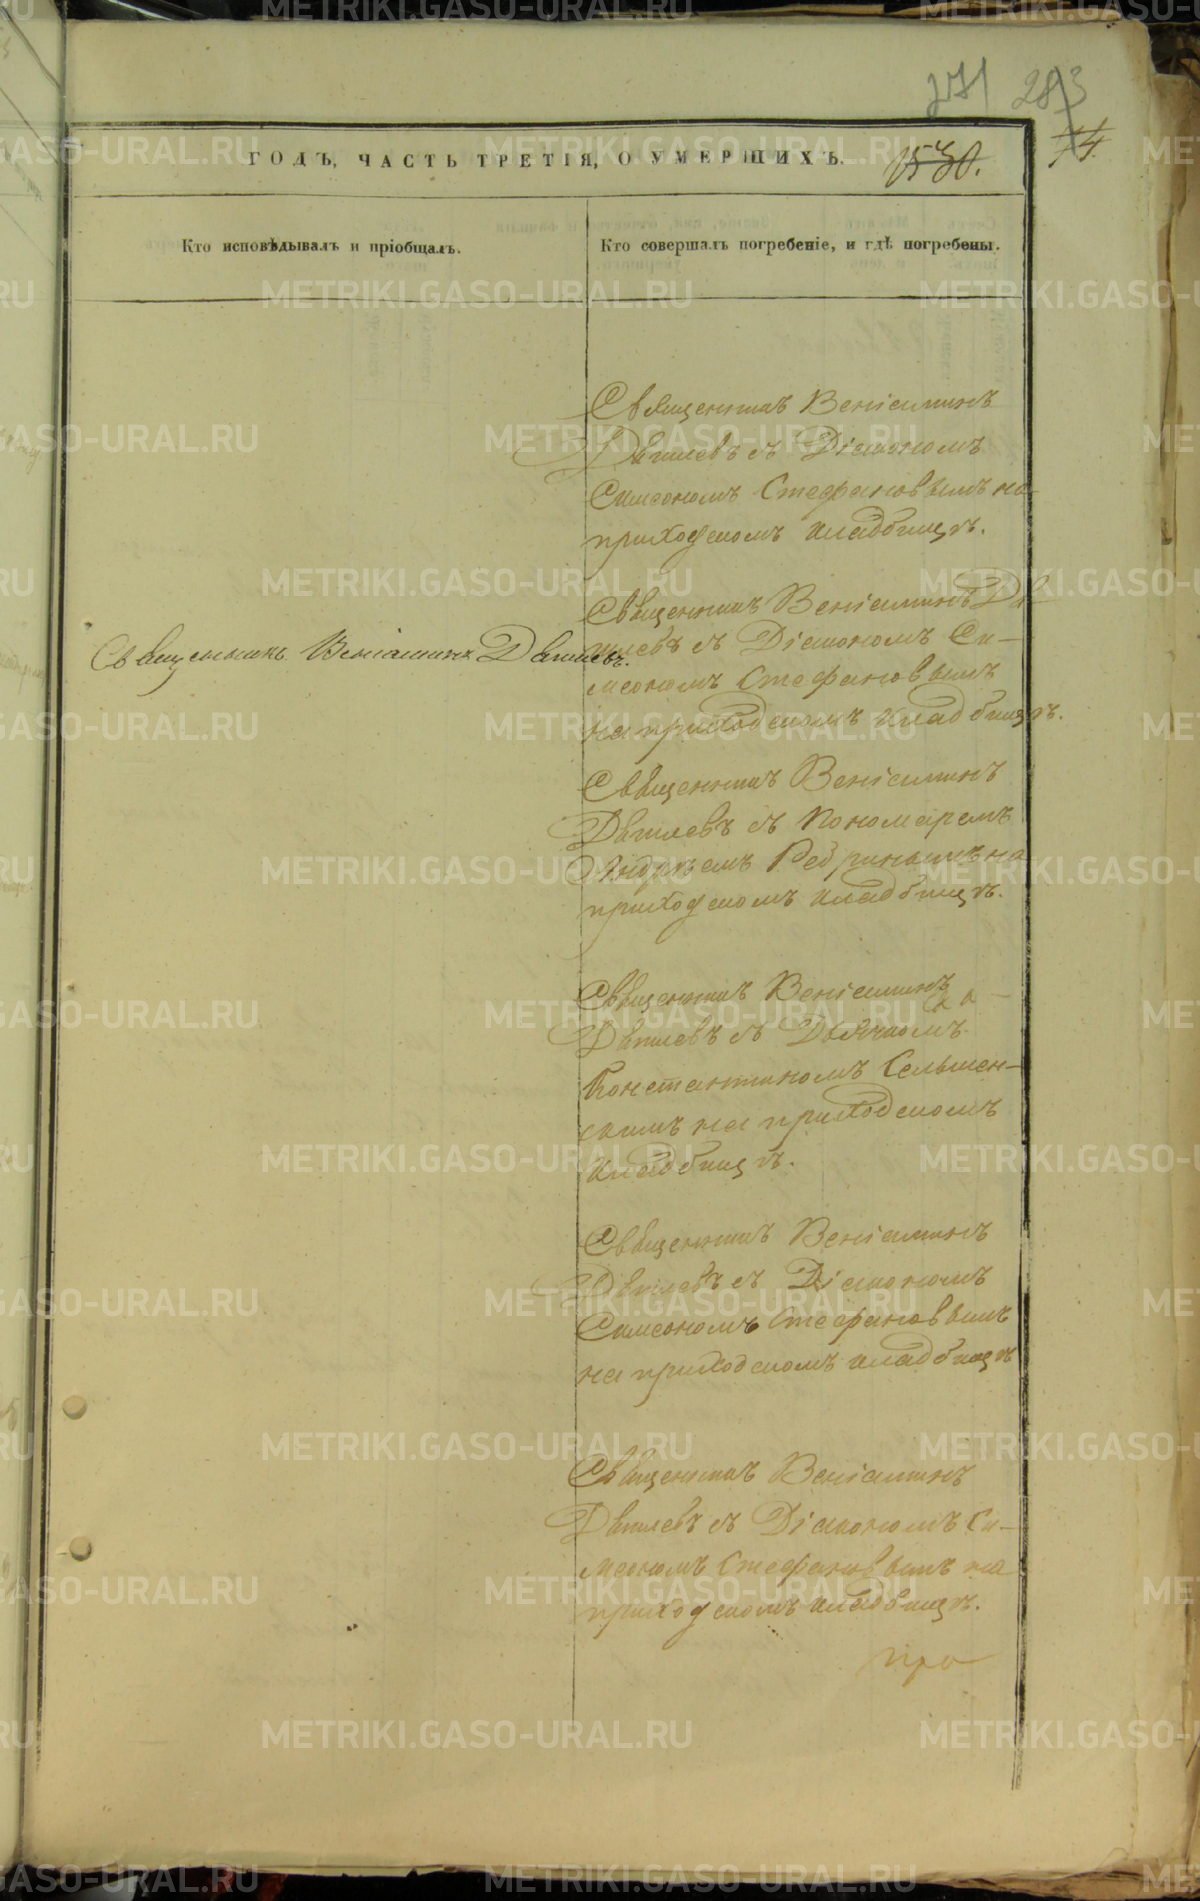 271 283
74.
ГОДЪ, ЧАСТЬ ТРЕТІЯ, О УМЕРШИХЪ.
Кто исповѣдывалъ и пріобщалъ.
Кто совершалъ погребеніе, и гдѣ погребены.
Священникъ Веніаминъ
съ Діакономъ
Симеономъ Стефановымъ на
приходскомъ кладбищѣ.
Священникъ Веніаминъ
съ Діакономъ Си-
меономъ Стефановымъ
на приходскомъ кладбищѣ.
Священникъ Веніаминъ
Священникъ Веніаминъ
съ Пономаремъ
на
приходскомъ кладбищѣ.
Священникъ Веніаминъ
съ Дьячкомъ
Константиномъ Сельмен-
скимъ на приходскомъ
кладбищѣ.
Священникъ Веніаминъ
съ Діакономъ
Симеономъ Стефановымъ
на приходскомъ кладбищѣ
Священникъ Веніаминъ
съ Діакономъ Си-
меономъ Стефановымъ на
приходскомъ кладбищѣ.
METRIKI.GASO-URAL.RU